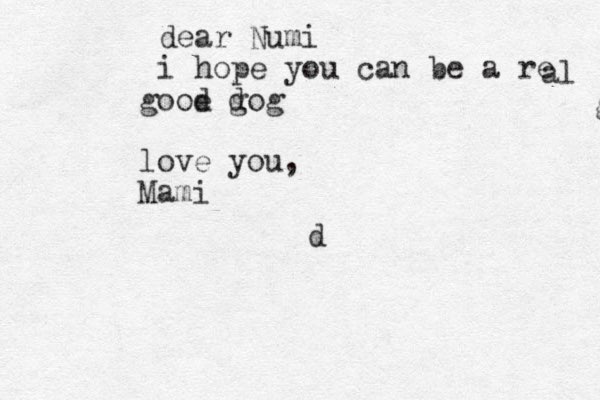 dear Numi
i hope you can be a real
good dog
love you,
Mami
d